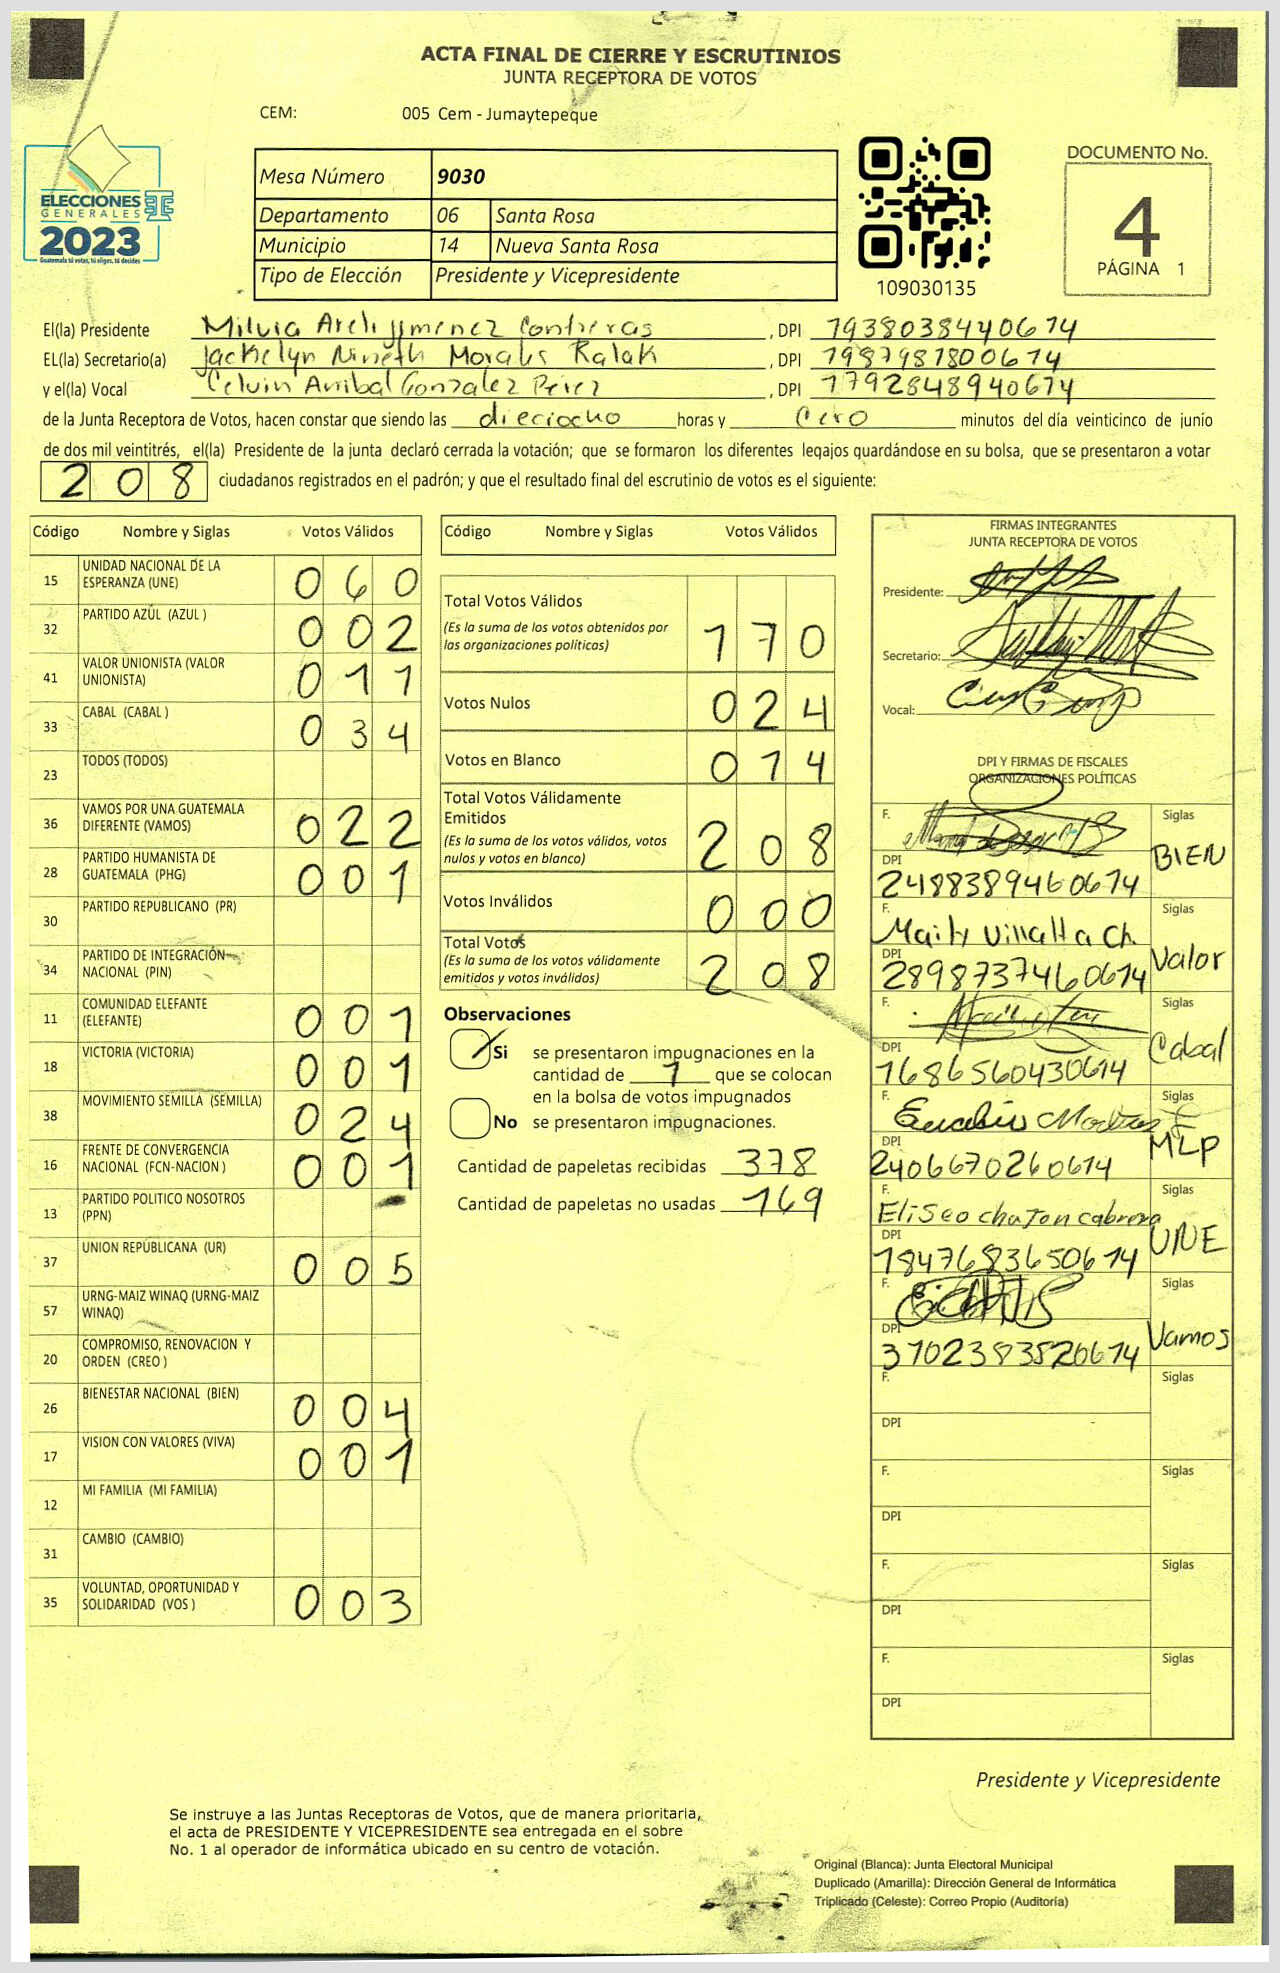 ACTA FINAL DE CIERRE Y ESCRUTINIOS
JUNTA RECEPTORA DE VOTOS
CEM: 005 Cem - Jumaytepeque
ELECCIONES
GENERALES
2023
Guatemala tú votas, tú eliges, tú decides
Mesa Número 9030
Departamento 06 Santa Rosa
Municipio 14 Nueva Santa Rosa
Tipo de Elección Presidente y Vicepresidente
109030135
DOCUMENTO No.
4
PÁGINA 1
El(la) Presidente Milvia Areli jimenez Contreras, DPI 1938038440614
EL(la) Secretario(a) Jackelyn Nineth Morales Ralak, DPI 1987981800614
y el(la) Vocal Celvin Anibal Gonzalez Perez, DPI 1792848940614
de la Junta Receptora de Votos, hacen constar que siendo las dieciocho horas y Cero minutos del día veinticinco de junio
de dos mil veintitrés, el(la) Presidente de la junta declaró cerrada la votación; que se formaron los diferentes legajos guardándose en su bolsa, que se presentaron a votar
208 ciudadanos registrados en el padrón; y que el resultado final del escrutinio de votos es el siguiente:
Código Nombre y Siglas Votos Válidos
15 UNIDAD NACIONAL DE LA ESPERANZA (UNE) 060
32 PARTIDO AZUL (AZUL ) 002
41 VALOR UNIONISTA (VALOR UNIONISTA) 011
33 CABAL (CABAL ) 034
23 TODOS (TODOS)
36 VAMOS POR UNA GUATEMALA DIFERENTE (VAMOS) 022
28 PARTIDO HUMANISTA DE GUATEMALA (PHG) 001
30 PARTIDO REPUBLICANO (PR)
34 PARTIDO DE INTEGRACIÓN NACIONAL (PIN)
11 COMUNIDAD ELEFANTE (ELEFANTE) 001
18 VICTORIA (VICTORIA) 001
38 MOVIMIENTO SEMILLA (SEMILLA) 024
16 FRENTE DE CONVERGENCIA NACIONAL (FCN-NACION ) 001
13 PARTIDO POLITICO NOSOTROS (PPN)
37 UNION REPUBLICANA (UR) 005
57 URNG-MAIZ WINAQ (URNG-MAIZ WINAQ)
20 COMPROMISO, RENOVACION Y ORDEN (CREO )
26 BIENESTAR NACIONAL (BIEN) 004
17 VISION CON VALORES (VIVA) 001
12 MI FAMILIA (MI FAMILIA)
31 CAMBIO (CAMBIO)
35 VOLUNTAD, OPORTUNIDAD Y SOLIDARIDAD (VOS ) 003
Código Nombre y Siglas Votos Válidos
Total Votos Válidos
(Es la suma de los votos obtenidos por
las organizaciones políticas) 170
Votos Nulos 024
Votos en Blanco 014
Total Votos Válidamente
Emitidos
(Es la suma de los votos válidos, votos
nulos y votos en blanco) 208
Votos Inválidos 000
Total Votos
(Es la suma de los votos válidamente
emitidos y votos inválidos) 208
Observaciones
Si se presentaron impugnaciones en la
cantidad de 1 que se colocan
en la bolsa de votos impugnados
No se presentaron impugnaciones.
Cantidad de papeletas recibidas 378
Cantidad de papeletas no usadas 169
FIRMAS INTEGRANTES
JUNTA RECEPTORA DE VOTOS
Presidente:
Secretario:
Vocal:
DPI Y FIRMAS DE FISCALES
ORGANIZACIONES POLÍTICAS
F. Siglas
BIEN
DPI
2488389460614
F. Maily Villalta Ch. Siglas
Valor
DPI
2898737460614
F. Siglas
Cabal
DPI
1686560430614
F. Siglas
MLP
DPI
2406670260614
F. Siglas
Eliseo chaJon cabrera
UNE
DPI
1847683650614
F. Siglas
Vamos
DPI
3702383520614
F. Siglas
DPI
F. Siglas
DPI
F. Siglas
DPI
F. Siglas
DPI
Presidente y Vicepresidente
Se instruye a las Juntas Receptoras de Votos, que de manera prioritaria,
el acta de PRESIDENTE Y VICEPRESIDENTE sea entregada en el sobre
No. 1 al operador de informática ubicado en su centro de votación.
Original (Blanca): Junta Electoral Municipal
Duplicado (Amarilla): Dirección General de Informática
Triplicado (Celeste): Correo Propio (Auditoría)